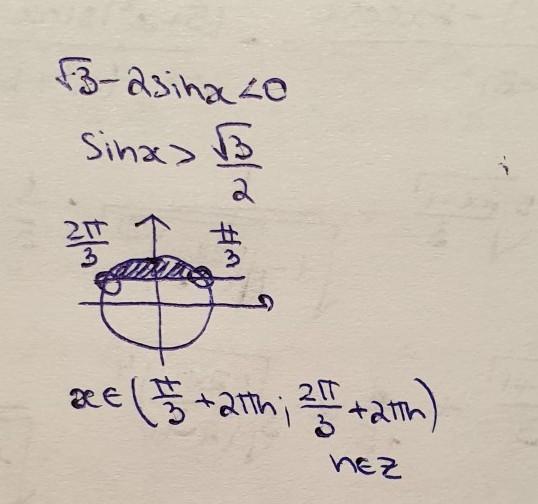 √3 - 2sinx < 0
sinx > √3/2
2π/3 π/3
x ∈ (π/3 + 2πn; 2π/3 + 2πn)
n ∈ Z